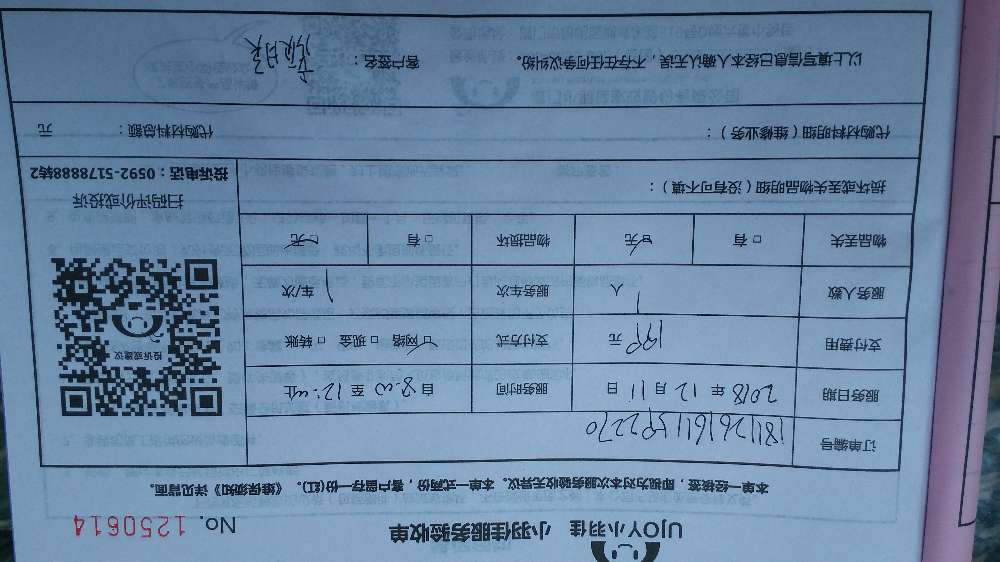 UJOY小羽佳 小羽佳服务验收单
No. 1250614
本单一经核签，即视为对本次服务验收无异议。本单一式两份，客户留存一份(红)。《维保须知》详见背面。
订单编号
服务日期 2018 年 12 月 11 日 服务时间 自 8:00 至 12:00 止
支付费用 199 元 支付方式 ☑ 网络 □ 现金 □ 转账
服务人数 1 人 服务车次 1 车/次
物品丢失 □ 有 ☑ 无 物品损坏 □ 有 ☑ 无
投诉或建议
损坏或丢失物品明细（没有可不填）：
扫码评价或投诉
投诉电话：0592-5178888转2
代购材料明细（维修业务）： 代购材料总额： 元
以上填写信息已经本人确认无误，不存在任何争议纠纷。 客户签名：